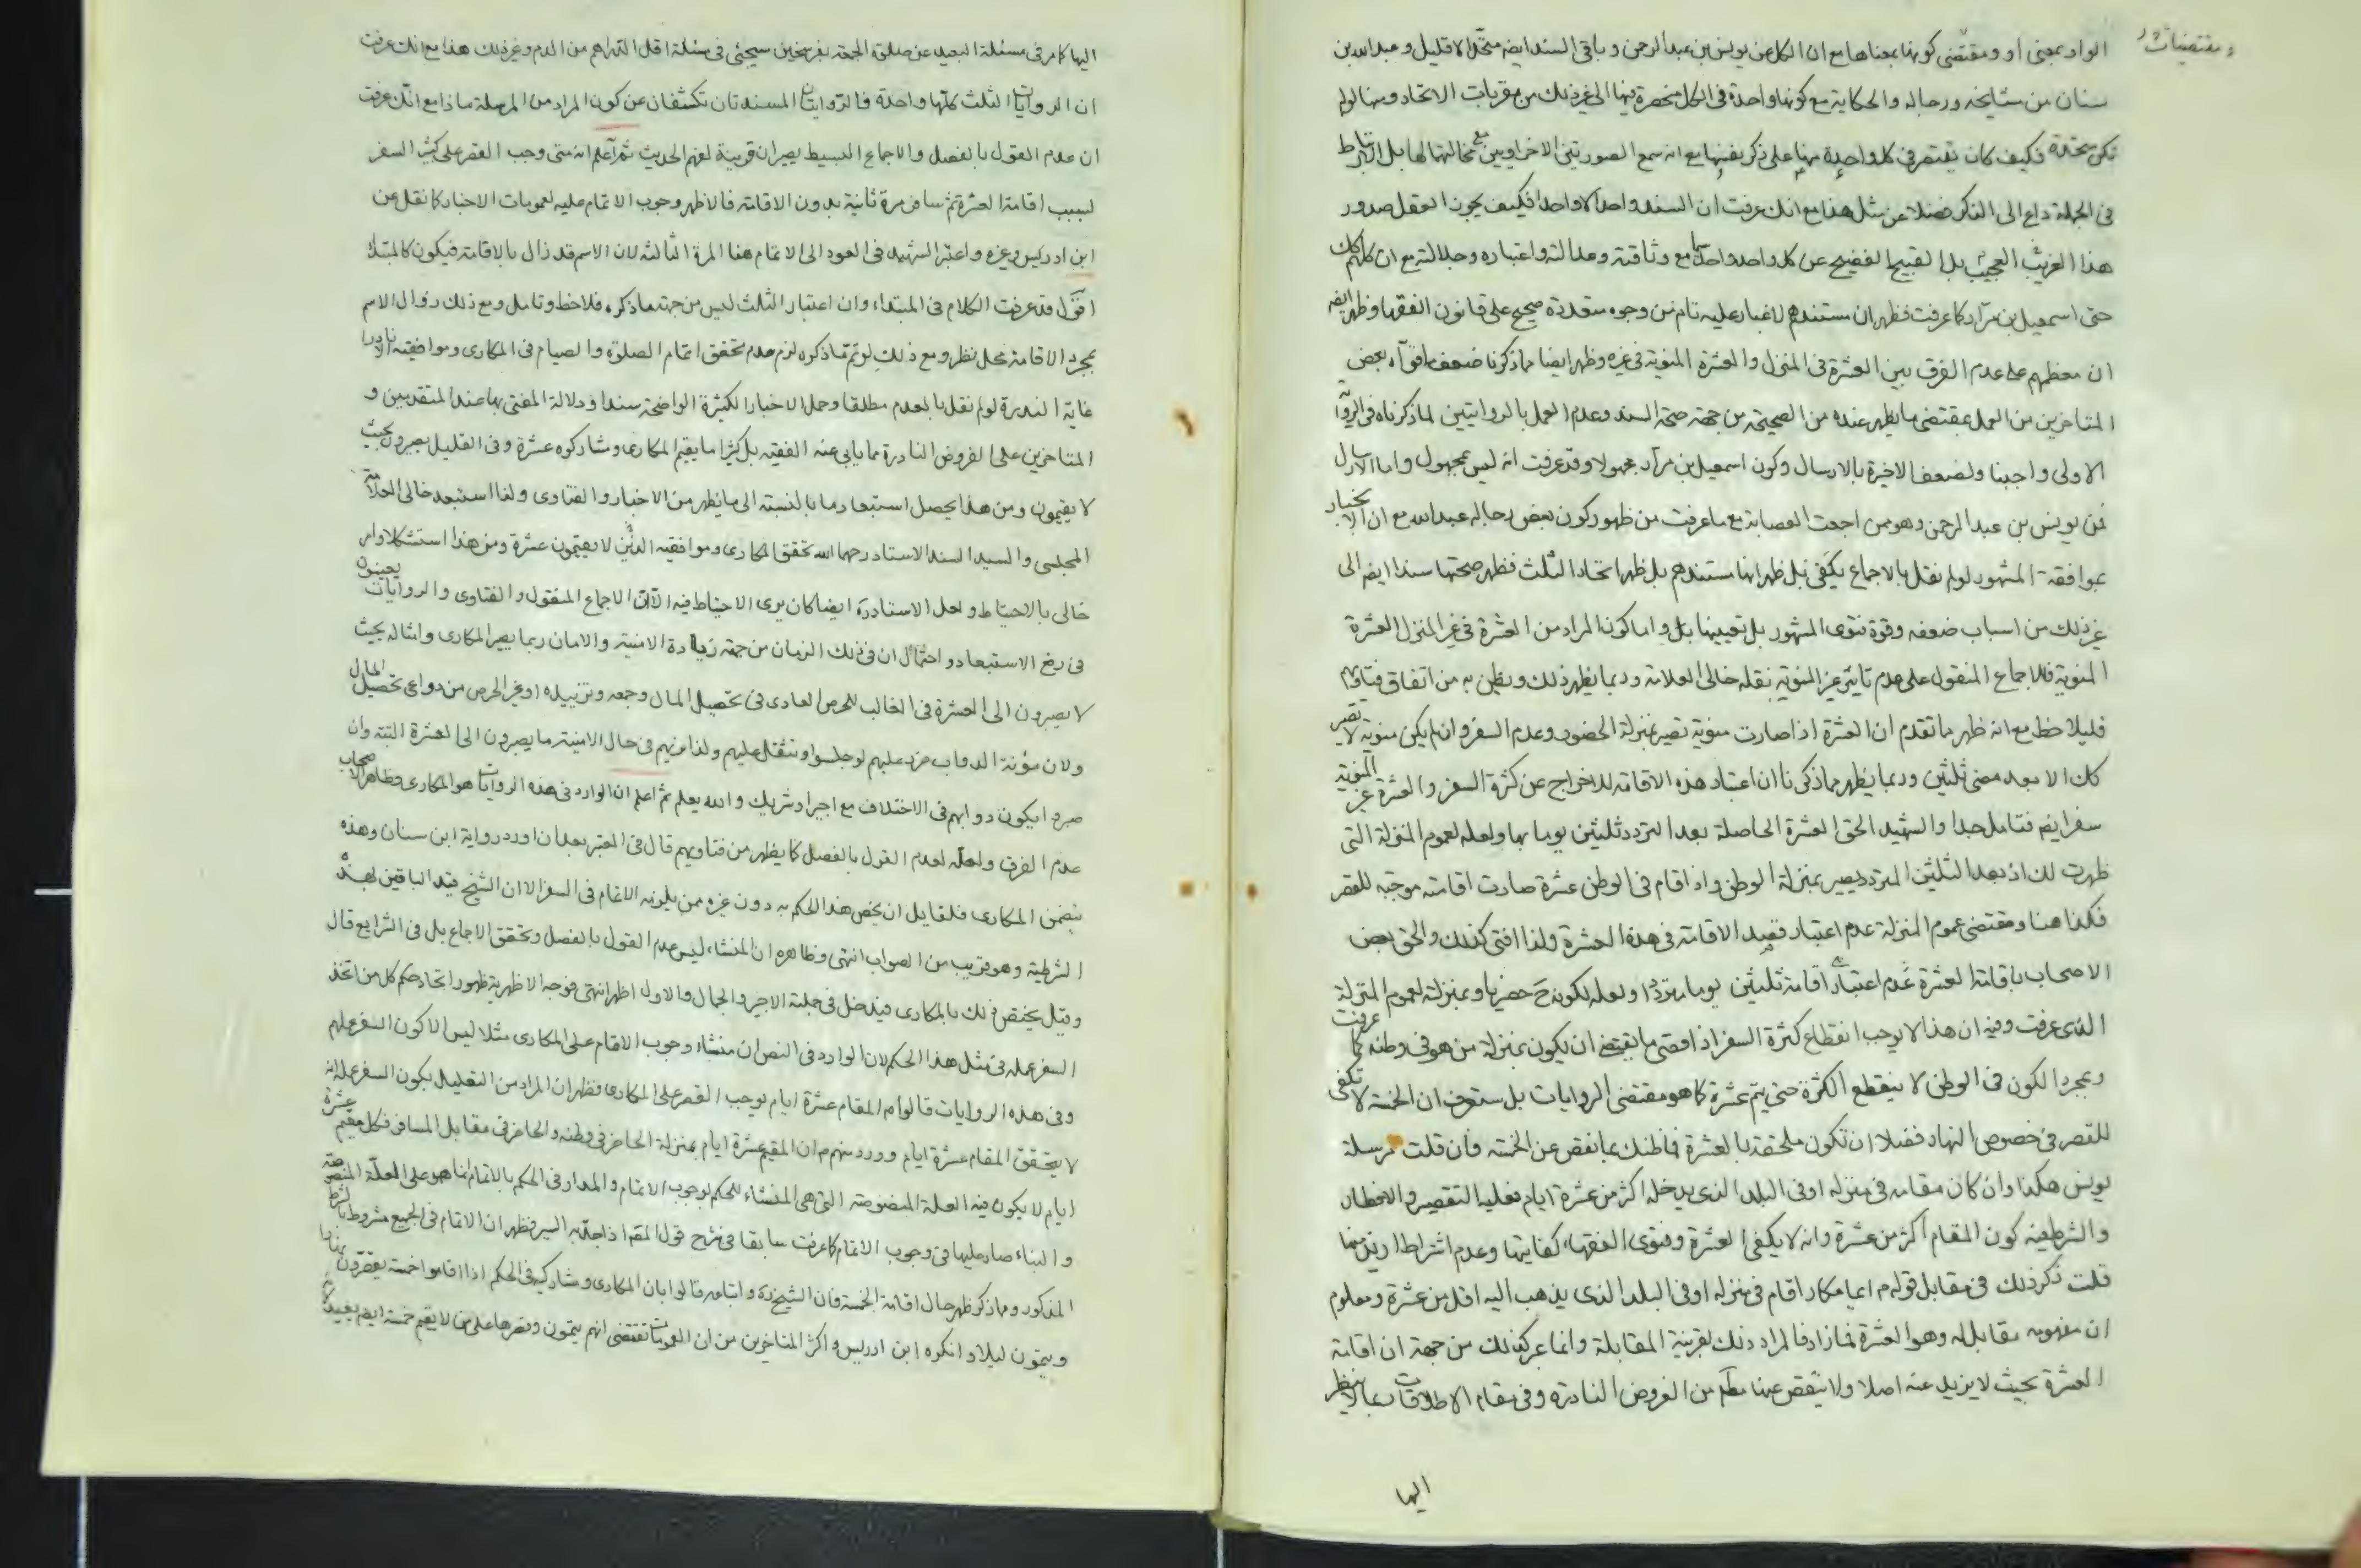 الواو بمعنى او ومقتضى كونها بمعناها مع ان الكل عن يونس بن عبد الرحمن وباقى السند ايضا متحد الا قليل وعبد الله بن
ومقتضيات
سنان من مشايخه ورجاله والحكاية مع كونها واحدة فى الكل منحصرة فيها الى غير ذلك من مقربات الاتحاد ومنها لو لم
تكن متحدة فكيف كان يقتصر فى كل واحدة منها على ذكر بعضها مع انه سمع الصورتين الاخراويين مع مخالتها لها بل الارتباط
فى الجملة داع الى الذكر فضلا عن مثل هذا مع انك عرفت ان السند واحد الا واحدا فكيف يجوز العقل صدور
هذا الغريب العجيب بل القبيح الفضيح عن كل واحد واحد سيما مع وثاقته وعدالته واعتباره وجلالته مع ان كلهم كك
حتى اسمعيل بن مرار كما عرفت فظهر ان مستندهم لا غبار عليه تام من وجوه متعددة صحيح على قانون الفقها وظهر ايضا
ان معظمهم على عدم الفرق بين العشرة فى المنزل والعشرة المنوية فى غيره وظهر ايضا مما ذكرنا ضعف ما قواه بعض
المتاخرين من العمل بمقتضى ما يظهر عنده من الصحيحة من جهة صحة السند وعدم العمل بالروايتين لما ذكرناه فى الرواية
الاولى واجبنا ولضعف الاخيرة بالارسال وكون اسمعيل بن مرار مجهولا وقد عرفت انه ليس بمجهول واما الارسال
فمن يونس بن عبد الرحمن وهو ممن اجمعت العصابة مع ما عرفت من ظهور كون بعض رجاله عبد الله مع ان الانجبار
بموافقة المشهور لو لم نقل بالاجماع يكفى بل ظهر انها مستندهم بل ظهر اتحاد الثلث فظهر صحتها سندا ايضا الى
غير ذلك من اسباب ضعفه وقوة فتوى المشهور بل تعيينها بل واما كون المراد من العشرة فى غير المنزل العشرة
المنوية فللاجماع المنقول على عدم تاثير غير المنوية نقله خالى العلامة وربما يظهر ذلك ويظن به من اتفاق فتاويهم
فليلاحظ مع انه ظهر مما تقدم ان العشرة اذا صارت منوية تصير بمنزلة الحضور وعدم السفر وان لم يكن منوية لا يصير
كك الا بعد مضى ثلثين وربما يظهر مما ذكرنا ان اعتبار هذه الاقامة للاخراج عن كثرة السفر والعشرة غير المنوية
سفر ايضا فتامل جدا والشهيد الحق العشرة الحاصلة بعد التردد ثلثين يوما بها ولعله لعموم المنزلة التى
ظهرت لك اذ بعد الثلثين المتردد يصير بمنزلة الوطن واذا قام فى الوطن عشرة صارت اقامته موجبة للقصر
فكذا هنا ومقتضى عموم المنزلة عدم اعتبار قصد الاقامة فى هذه العشرة ولذا افتى كذلك والحق بعض
الاصحاب باقامة العشرة عدم اعتبار اقامة ثلثين يوما مترددا ولعله لكونه ح حضريا وبمنزلته لعموم المنزلة
الذى عرفت وفيه ان هذا لا يوجب انقطاع كثرة السفر اذ اقصى ما يقتضى ان يكون بمنزلة من هو فى وطنه كما عرفت
وبمجرد الكون فى الوطن لا ينقطع الكثرة حتى يتم عشرة كما هو مقتضى الروايات بل ستعرف ان الخمسة لا تكفى
للقصر فى خصوص النهار فضلا ان تكون ملحقة بالعشرة فما ظنك بما نقص عن الخمسة فان قلت مرسلة
يونس هكذا وان كان مقامه فى منزله او فى البلد الذى يدخله اكثر من عشرة ايام فعليه التقصير والافطار
والشرطية كون المقام اكثر من عشرة وانه لا يكفى العشرة وفتوى الفقهاء كفايتها وعدم اشتراط ازيد منها
قلت ذكر ذلك فى مقابل قوله م ايما مكار اقام فى منزله او فى البلد الذى يذهب اليه اقل من عشرة ومعلوم
ان مفهومه مقابل له وهو العشرة فما زاد فالمراد ذلك بقرينة المقابلة وانما عبر كذلك من جهة ان اقامة
العشرة بحيث لا يزيد عنه اصلا ولا ينقص عنها من الفروض النادرة وفى مقام الاطلاقات لا ينظر
اليها
اليها كما مر فى مسئلة البعيد عن صلوة الجمعة بفرسخين سيجئى فى مسئلة اقل الدراهم من الدم وغير ذلك هذا مع انك عرفت
ان الروايات الثلث كلها واحدة فالروايتان المسندتان تكشفان عن كون المراد من المرسلة ماذا مع انك عرفت
ان عدم القول بالفصل والاجماع البسيط يصيران قرينة لفهم الحديث ثم اعلم انه متى وجب القصر على كثير السفر
بسبب اقامة العشرة ثم سافر مرة ثانية بدون الاقامة فالاظهر وجوب الاتمام عليه لعمومات الاخبار كما نقل عن
ابن ادريس وغيره واعتبر الشهيد فى العود الى الاتمام هنا المرة الثالثة لان الاسم قد زال بالاقامة فيكون كالمبتدأ
اقول قد عرفت الكلام فى المبتداء وان اعتبار الثلث ليس من جهة ما ذكره فلاحظ وتامل ومع ذلك زوال الاسم
بمجرد الاقامة محل نظر ومع ذلك لو تم ما ذكره لزم عدم تحقق اتمام الصلوة والصيام فى المكارى وموافقيه الا نادرا
غاية الندرة لو لم نقل بالعدم مطلقا وحمل الاخبار الكثيرة الواضحة سندا ودلالة المفتى بها عند المتقدمين و
المتاخرين على الفروض النادرة مما يابى عنه الفقيه بل كثيرا ما يقيم المكارى ومشاركوه عشرة وفى القليل يصيرون بحيث
لا يقيمون ومن هذا يحصل استبعاد ما بالنسبة الى ما يظهر من الاخبار والفتاوى ولذا استبعد خالى العلامة
المجلسى والسيد السند الاستاد رحمهما الله تحقق المكارى وموافقيه الذين لا يقيمون عشرة ومن هذا استشكلا وامر
خالى بالاحتياط ولعل الاستاد ره ايضا كان يرى الاحتياط فيه الا ان الاجماع المنقول والفتاوى والروايات يعينون
فى رفع الاستبعاد واحتمال ان فى ذلك الزمان من جهة زيادة الامنية والامان ربما يصير المكارى وامثاله بحيث
لا يصيرون الى العشرة فى الغالب للحرص العادى فى تحصيل المال وجمعه وتزييده او غير الحرص من دواعى تحصيل المال
ولان مؤنة الدواب عليهم لو جلسوا وتثقل عليهم ولذا نريهم فى حال الامنية ما يصبرون الى العشرة البتة وان
صبروا يكون دوابهم فى الاختلاف مع اجير او شريك والله يعلم ثم اعلم ان الوارد فى هذه الروايات هو المكارى وظاهر الاصحاب
عدم الفرق ولعله لعدم القول بالفصل كما يظهر من فتاويهم قال فى المعتبر بعد ان اورد رواية ابن سنان وهذه
يتضمن المكارى فلقايل ان يخص هذا الحكم به دون غيره ممن يلزمه الاتمام فى السفر الا ان الشيخ قيد الباقين بهذه
الشرطية وهو قريب من الصواب انتهى وظاهره ان المنشاء ليس عدم القول بالفصل وتحقق الاجماع بل فى الشرايع قال
وقيل يختص ذلك بالمكارى فيدخل فى جملته الاجير والجمال والاول اظهر انتهى فوجه الاظهرية ظهور اتحاد حكم كل من اتخذ
السفر عمله فى مثل هذا الحكم لان الوارد فى النص ان منشاء وجوب الاتمام على المكارى مثلا ليس الا كون السفر عملهم
وفى هذه الروايات قالوا م المقام عشرة ايام يوجب القصر على المكارى فظهر ان المراد من التعليل بكون السفر عمله انه
لا يتحقق المقام عشرة ايام وورد منهم م ان المقيم عشرة ايام بمنزلة الحاضر فى وطنه والحاضر فى مقابل المسافر فكل مقيم عشرة
ايام لا يكون فيه العلة المنصوصة التى هى المنشاء للحكم بوجوب الاتمام والمدار فى الحكم بالاتمام انما هو على العلة المنصوصة
والبناء صار عليها فى وجوب الاتمام كما عرفت سابقا فى شرح قول المقم اذا جد به السير فظهر ان الاتمام فى الجميع مشروط بالشرط
المذكور ومما ذكر ظهر حال اقامة الخمسة فان الشيخ ره واتباعه قالوا بان المكارى ومشاركيه فى الحكم اذا اقاموا خمسة يقصرون نهارا
ويتمون ليلا وانكره ابن ادريس واكثر المتاخرين من ان العمومات تقتضى انهم يتمون وقصرها على من لا يقيم خمسة ايضا بعيد